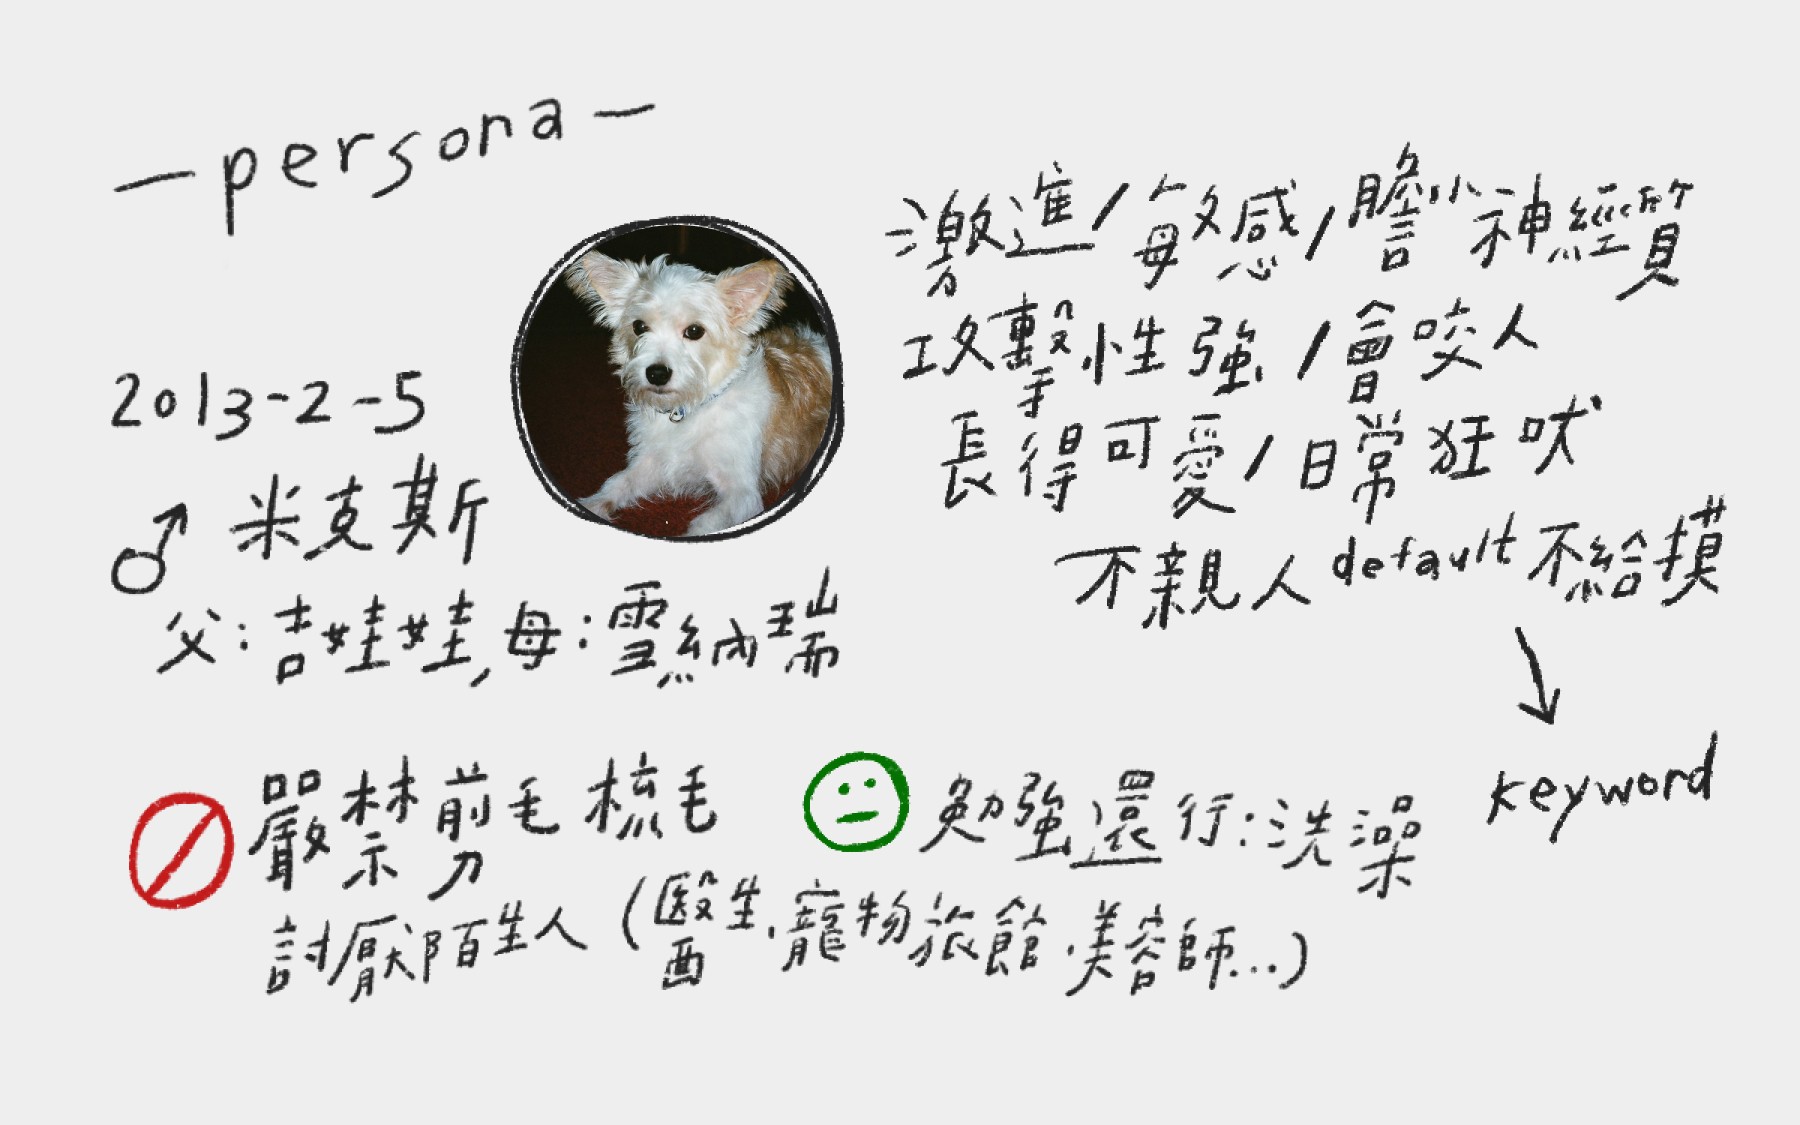 —persona—
2013-2-5
♂ 米克斯
父:吉娃娃,母:雪納瑞
激進/敏感/膽小神經質
攻擊性強/會咬人
長得可愛/日常狂吠
不親人default不給摸
keyword
嚴禁剪毛梳毛
勉強還行:洗澡
討厭陌生人(醫生.寵物旅館.美容師...)